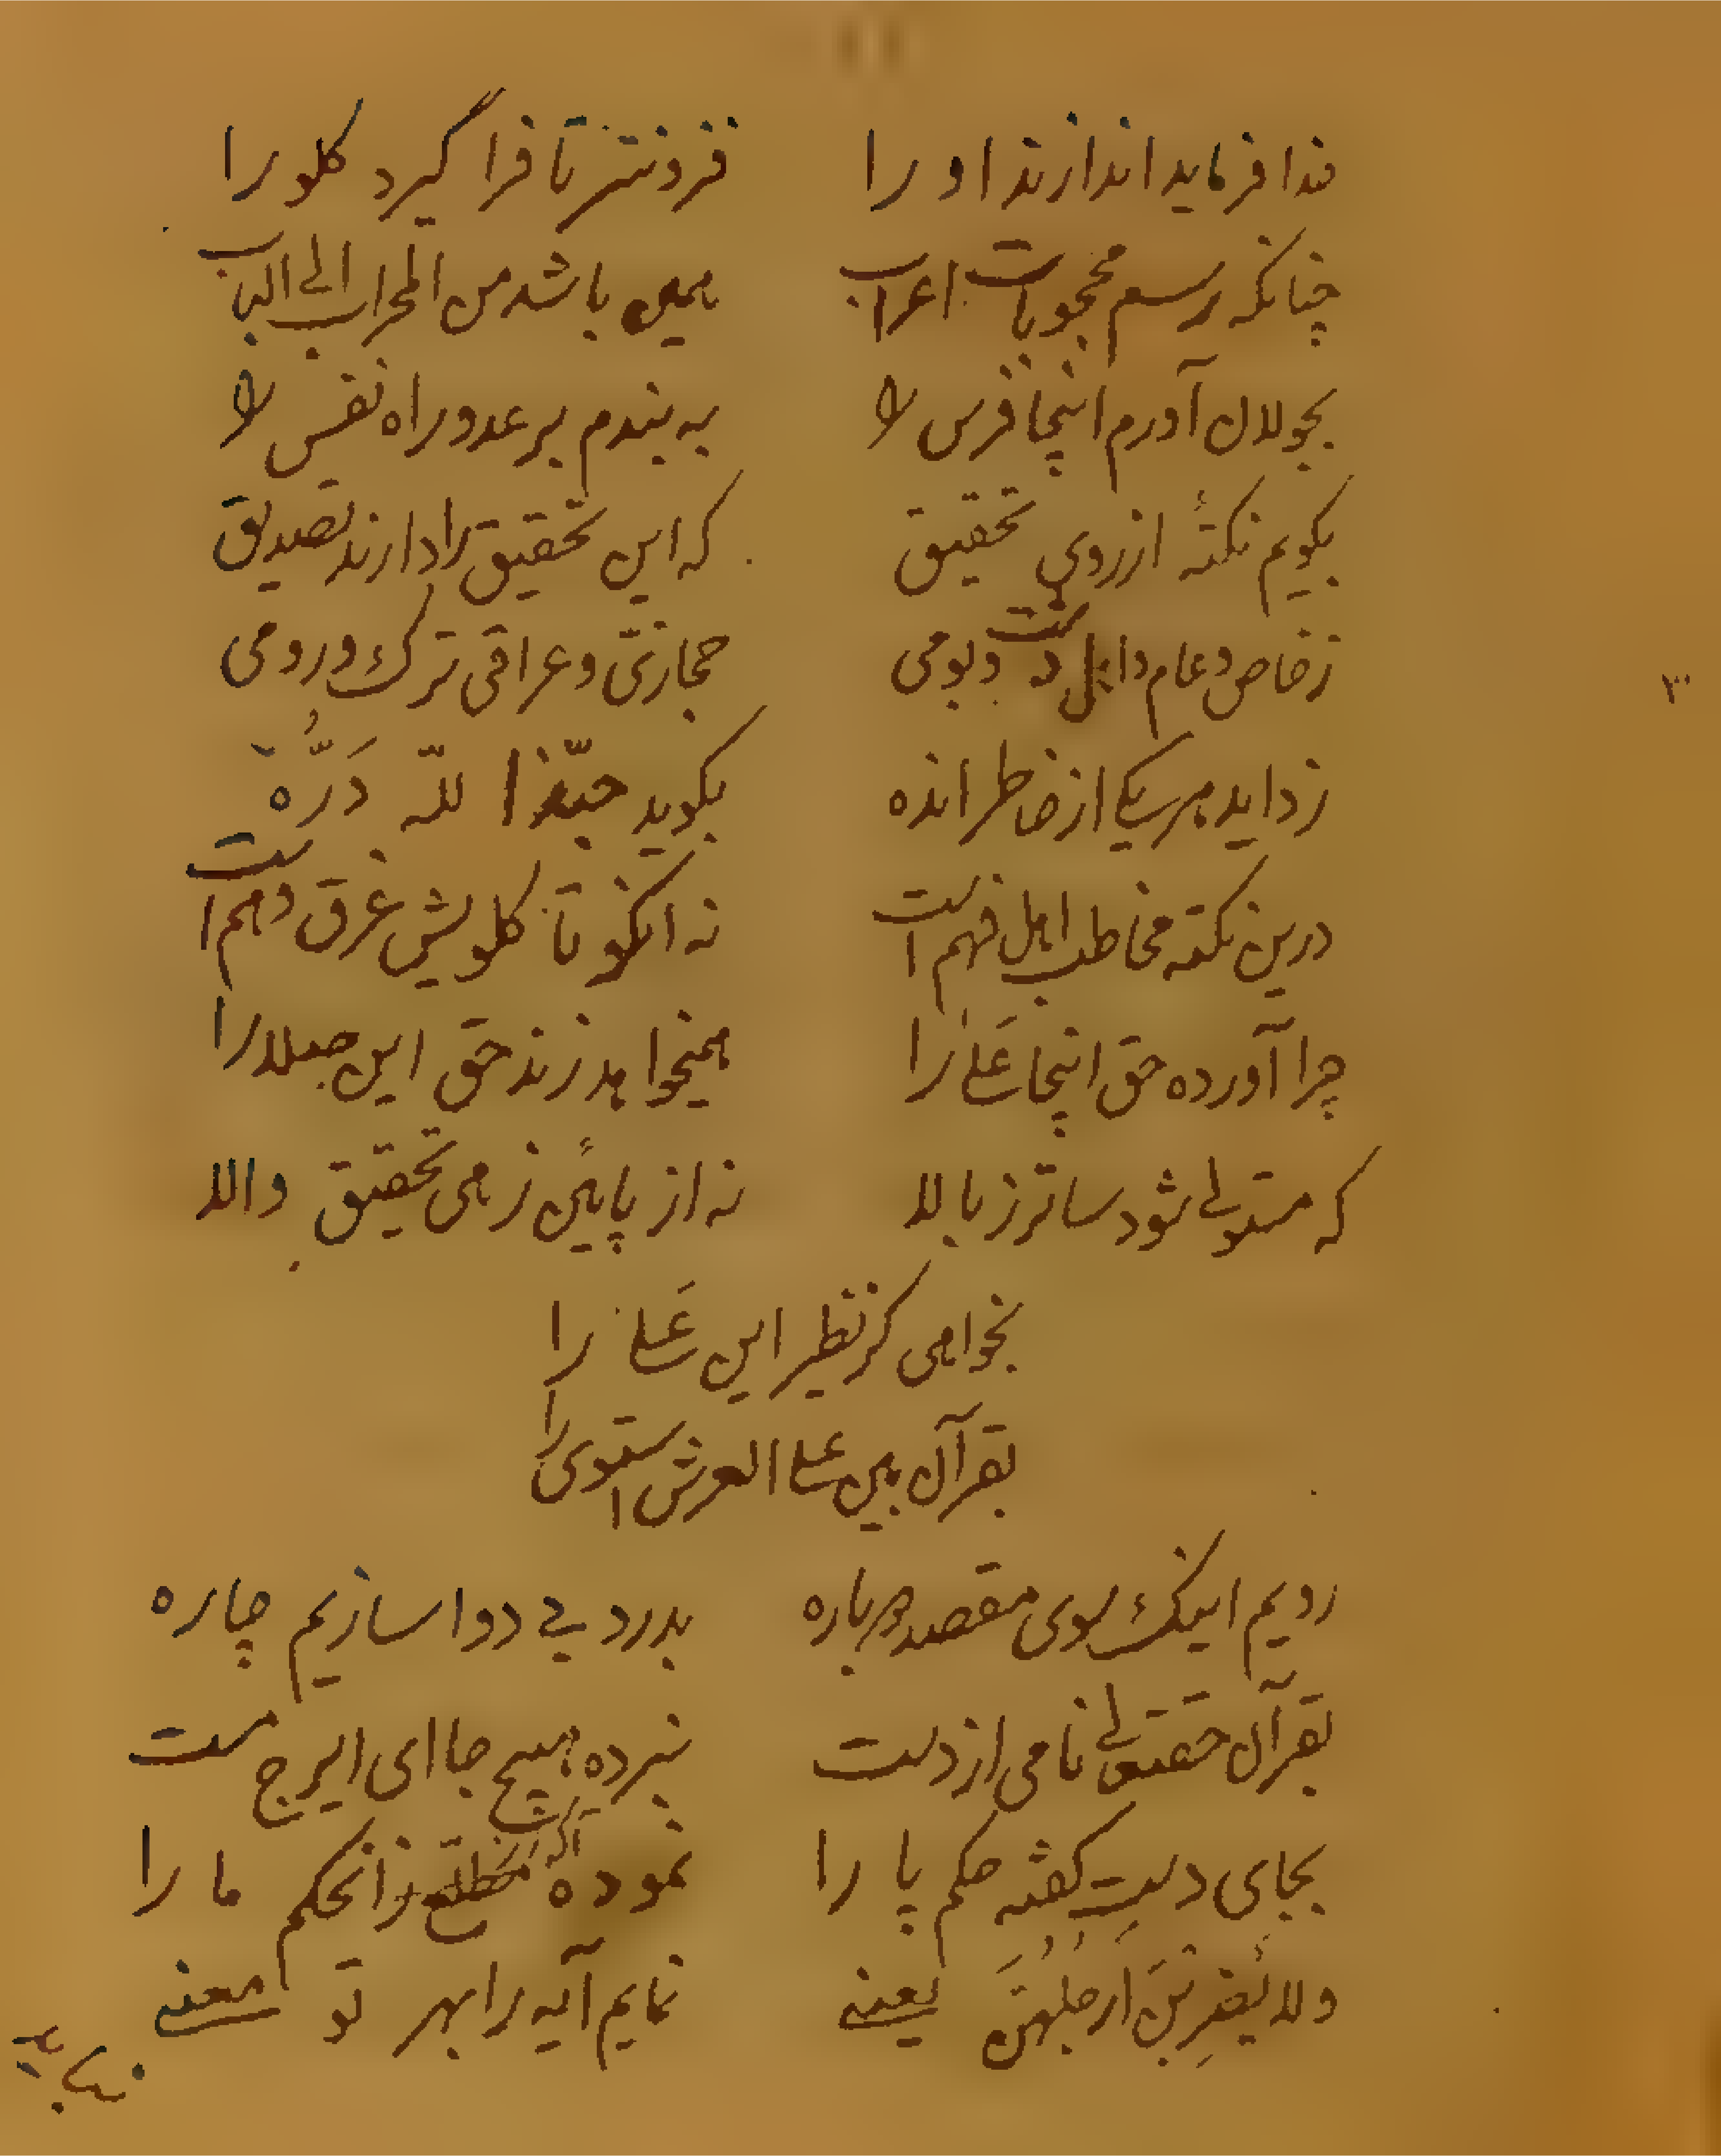 خدا فرماید اندازند او را فزونتر تا فرا گیرد کلو را
چنانکه رسم محجوبات اعراب همین باشد من المحراب الی الباب
بجولان آورم اینجا فرس را به بندم بر عدو راه نفس را
بکویم نکتهٔ از روی تحقیق که این تحقیق را دارند تصدیق
ز خاص و عام داخل دشت و بومی حجازیّ و عراقی ترک و رومی
زداید هر یکی از خاطر انده بکوید حبّذا للّه دَرُّه
درین نکته مخاطب اهل فهم است نه انکو تا کلویش غرق وهم است
چرا آورده حق اینجا عَلیٰ را همیخواهد زند حق این صلا را
که مستولی شود ساتر ز بالا نه از پایین زهی تحقیق والا
نخواهی کز نظیر این عَلی را
بقرآن بین علی العرش استوی را
رویم اینک سوی مقصد دوباره بدرد بی دوا سازیم چاره
بقرآن حقتعالی نامی از دست نبرده هیچ جا ای ایرج مست
بجای دست کفته حکم پا را نموده آکه از آنحکم ما را
ولا یَضرِبنَ اَرجُلِهُنَّ یعنی نمایم آیه را بهر تو معنی